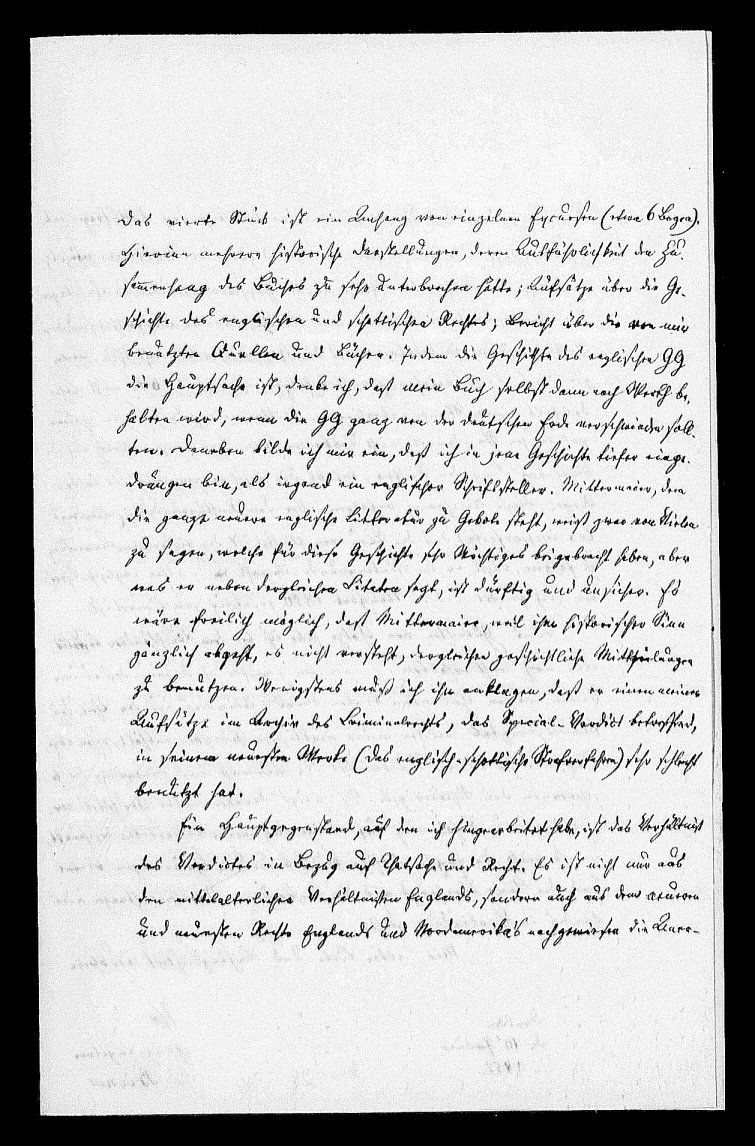 Das vierte Stück ist ein Anhang von einzelnen Excursen (etwa 6 Bogen).
Hierinn mehrere historische Darstellungen, deren Ausführlichkeit den Zu-
sammenhang des Buches zu sehr unterbrochen hätte; Aufsätze über die Ge-
schichte des englischen und schottischen Rechtes; Bericht über die von mir
benutzten Quellen und Bücher. Indem die Geschichte des englischen GG
die Hauptsache ist, denke ich, daß mein Buch selbst dann noch Werth be-
halten wird, wenn die GG ganz von der deutschen Erde verschwinden soll-
ten. Daneben bilde ich mir ein, daß ich in jene Geschichte tiefer einge-
drungen bin, als irgend ein englischer Schriftsteller. Mittermaier, dem
die ganze neuere englische Litteratur zu Gebote steht, weiß zwar von Vielen
zu sagen, welche für diese Geschichte sehr Wichtiges beigebracht haben, aber
was er neben dergleichen Citaten sagt, ist dürftig und unsicher. Es
wäre freilich möglich, daß Mittermaier, weil ihm historischer Sinn
gänzlich abgeht, es nicht versteht, dergleichen geschichtliche Mittheilungen
zu benutzen. Wenigstens muß ich ihn anklagen, daß er einen meiner
Aufsätze im Archiv des Criminalrechts, das Special-Verdict betreffend,
in seinem neuesten Werke (das englisch-schottische Strafverfahren) sehr schlecht
benützt hat.
Ein Hauptgegenstand, auf den ich hingearbeitet habe, ist das Verhältniß
des Verdictes in Bezug auf Thatsache und Recht. Es ist nicht nur aus
den mittelalterlichen Verhältnissen Englands, sondern auch aus dem neueren
und neuesten Rechte Englands und Nordamerika's nachgewiesen die Uner-